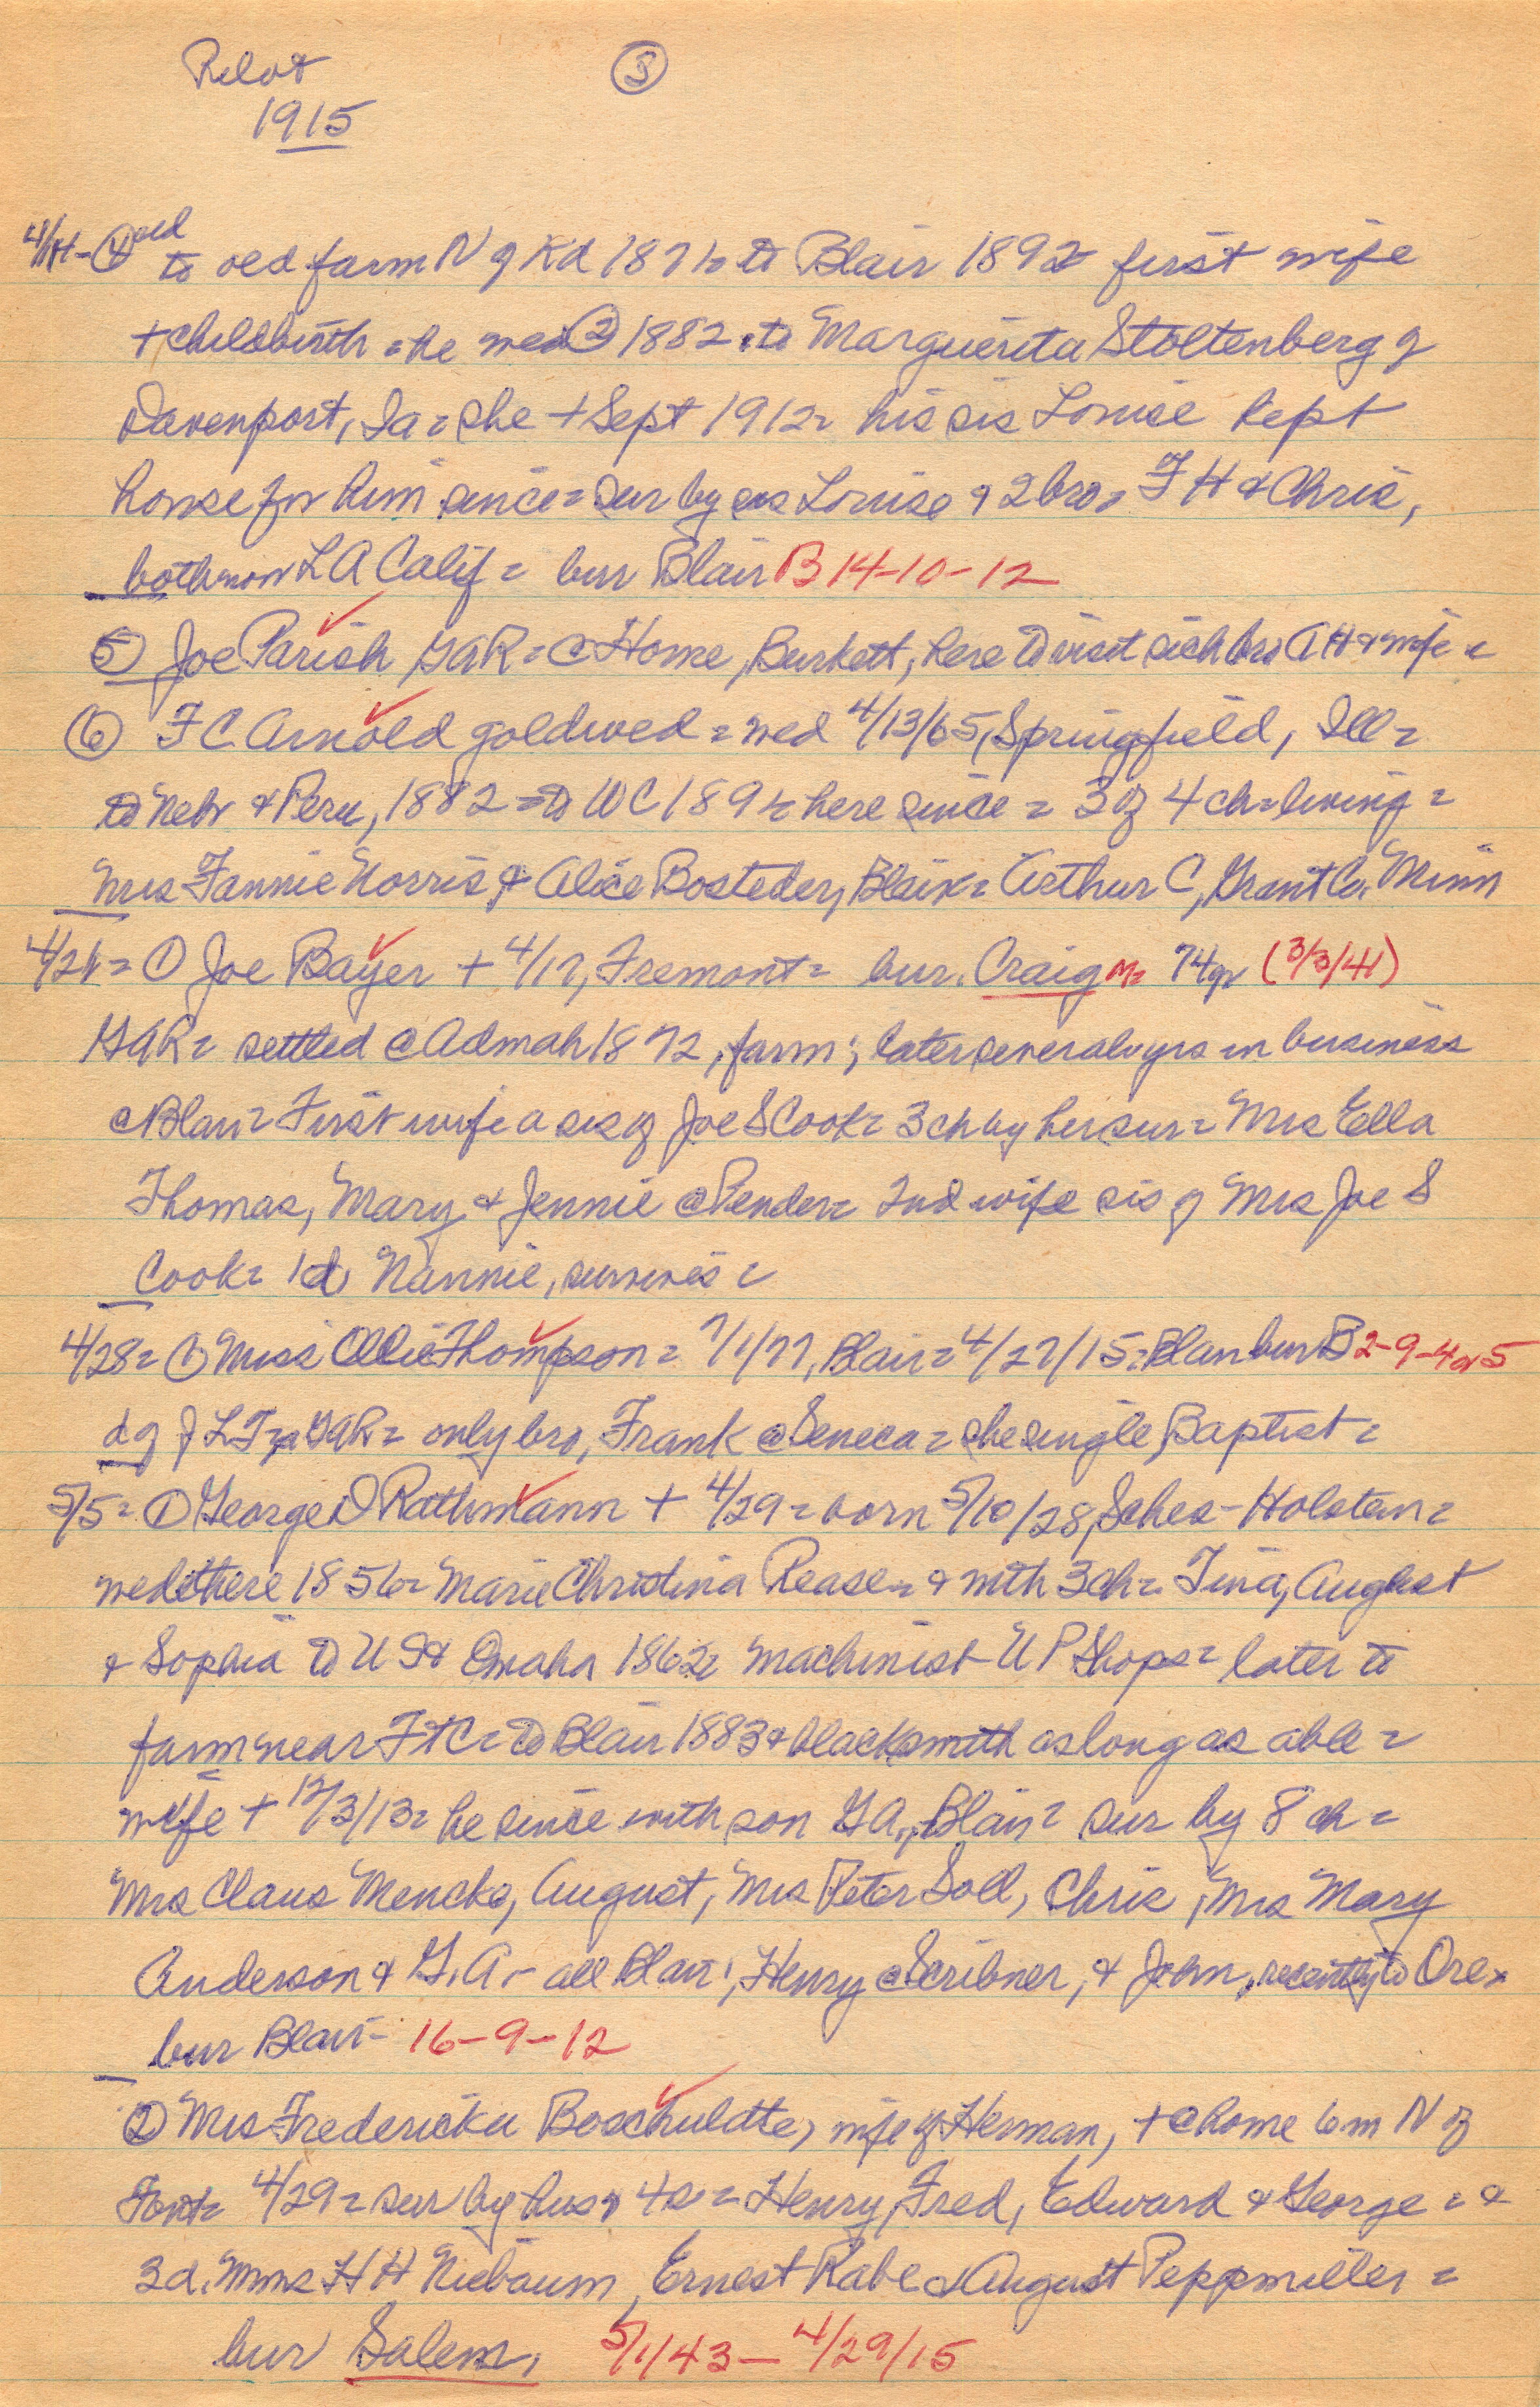 Pilot ⑤
1915
4/14-④ old
to old farm N of Kd 1876 to Blair 1892 first wife
+ childbirth = he wed ② 1882 to Marguerita Stoltenberg of
Davenport, Ia = she + Sept 1912 = his sis Louise kept
house for him since = sur by sis Louise & 2 bro = F H & Chris,
both now L A Calif = bur Blair B 14-10-12
⑤ Joe Parish GAR = @ Home, Burkett, here to visit sick bro A H & wife =
⑥ F C Arnold gold wed = wed 4/13/65, Springfield, Ill =
to Nebr & Peru, 1882 = to WC 189 here since = 3 of 4 ch = living =
Mrs Fannie Norris & Alice Bosteder, Blair = Arthur C, Grant Co. Minn
4/21 = ① Joe Bayer + 4/17, Fremont = bur. Craig 74yr (3/3/41)
GAR = settled @ Admah 1872, farm; later several yrs in business
@ Blair = First wife a sis of Joe S Cook = 3 ch by her sur = Mrs Ella
Thomas, Mary & Jennie @ Pender = 2nd wife sis of Mrs Joe S
Cook = 1 d Nannie, survives =
4/28 = ① Miss Ollie Thompson = 7/1/77, Blair = 4/27/15 = Blair bur B 2-9-4 or 5
d of J L T, a GAR = only bro, Frank @ Seneca = she single, Baptist =
5/5 = ① George D Rathmann + 4/29 = born 5/10/28, Schles-Holstein =
wed there 1856 = Marie Christina Rease = & with 3 ch = Tina, August
& Sophia to US & Omaha 1862 = machinist U P Shops = later to
farm near Ft C = to Blair 1883 & blacksmith as long as able =
wife + 12/3/13 = he since with son G A., Blair = sur by 8 ch =
Mrs Claus Mencke, August, Mrs Peter Soll, Chris, Mrs Mary
Anderson & G. A. - all Blair; Henry @ Scribner, & John, recently to Ore =
bur Blair - 16-9-12
② Mrs Fredericka Boschuldte, wife of Herman, + @ home 6m N of
Font = 4/29 = sur by hus & 4 s = Henry, Fred, Edward & George = &
3 d. Mmes H H Niebaum, Ernest Rabe & August Peppmiller =
bur Salem, 5/1/43 - 4/29/15